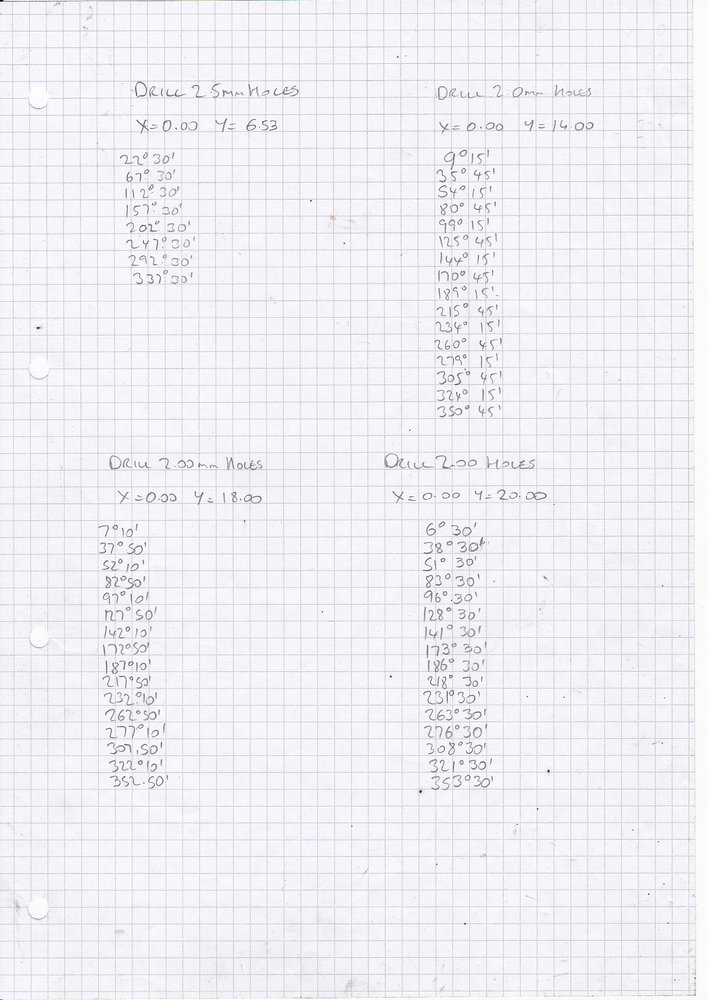 DRILL 2.5mm HOLES
X=0.00 Y=6.53
22° 30'
67° 30'
112° 30'
157° 30'
202° 30'
247° 30'
292° 30'
337° 30'
DRILL 2.0mm HOLES
X=0.00 Y=14.00
9° 15'
35° 45'
54° 15'
80° 45'
99° 15'
125° 45'
144° 15'
170° 45'
189° 15'.
215° 45'
234° 15'
260° 45'
279° 15'
305° 45'
324° 15'
350° 45'
DRILL 2.00mm HOLES
X=0.00 Y=18.00
7° 10'
37° 50'
52° 10'
82° 50'
97° 10'
127° 50'
142° 10'
172° 50'
187° 10'
217° 50'
232° 10'
262° 50'
277° 10'
307.50'
322° 10'
352.50'
DRILL 2.00 HOLES
X=0.00 Y=20.00
6° 30'
38° 30'
51° 30'
83° 30'
96° 30'
128° 30'
141° 30'
173° 30'
186° 30'
218° 30'
231° 30'
263° 30'
276° 30'
308° 30'
321° 30'
353° 30'